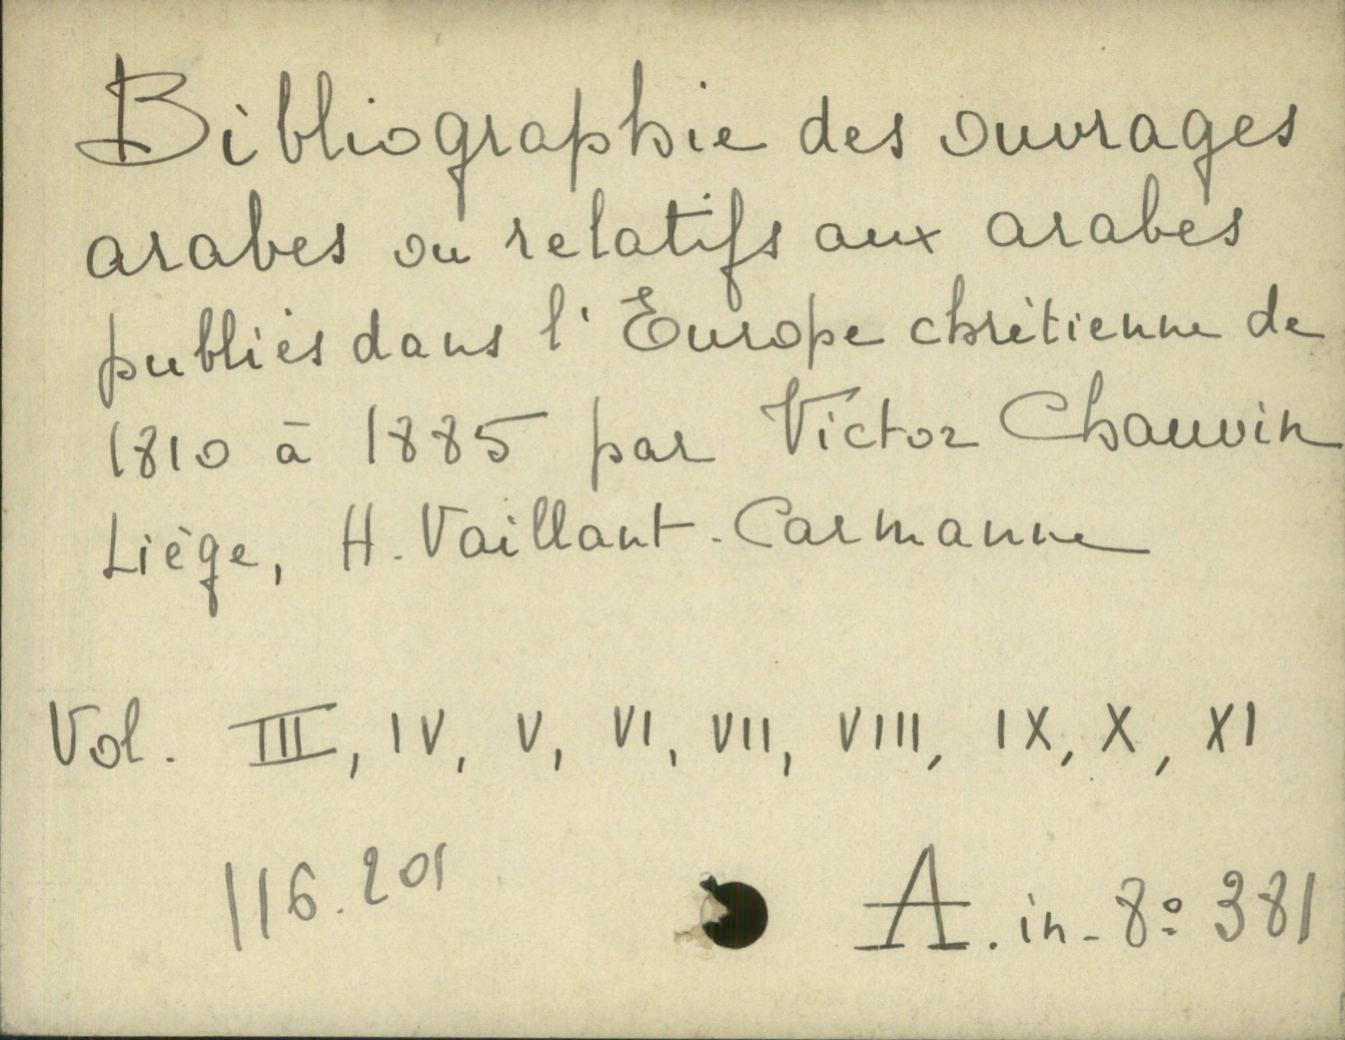 Bibliographie des ouvrages
arabes ou relatifs aux arabes
publiés dans l'Europe chrétienne de
1810 à 1885 par Victor Chauvin
Liège, H. Vaillant-Carmanne
Vol. III, IV, V, VI, VII, VIII, IX, X, XI
116.201
A. in-8º 381